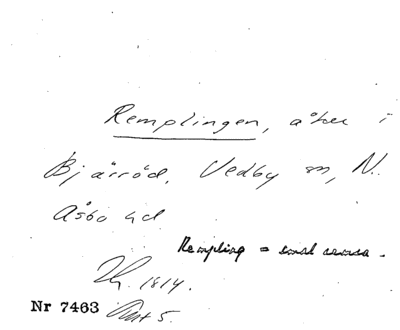 Remplingen, åker i
Bjärröd, Vedby sn, N.
Åsbo hd
Rempling = smal remsa.
1814.
Nr 7463